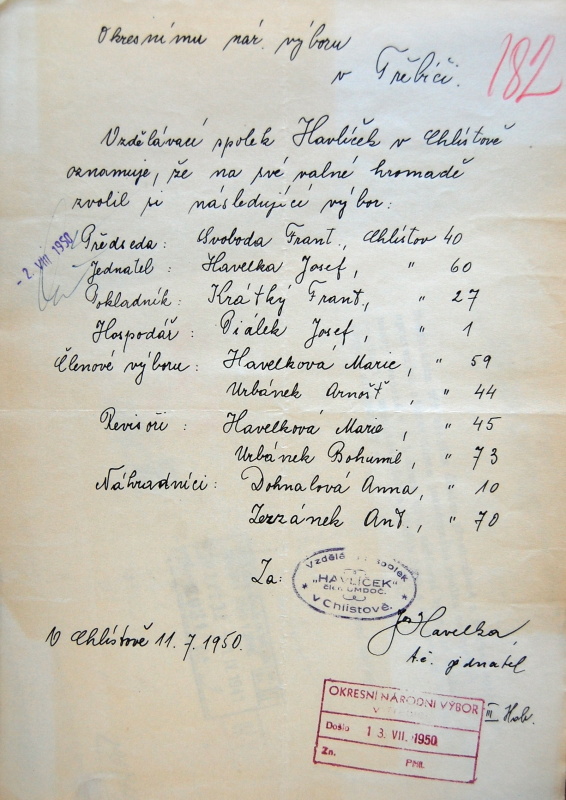 Okresnímu nár. výboru
v Třebíči.
182
Vzdělávací spolek Havlíček v Chlístově
oznamuje, že na své valné hromadě
zvolil si následující výbor:
- 2. VIII 1950
Předseda: Svoboda Frant., Chlístov 40
Jednatel: Havelka Josef, " 60
Pokladník: Krátký Frant., " 27
Hospodář: Piálek Josef, " 1
Členové výboru: Havelková Marie, " 59
Urbánek Arnošt, " 44
Revisoři: Havelková Marie, " 45
Urbánek Bohumil, " 73
Náhradníci: Dohnalová Anna, " 10
Jezzánek Ant., " 70
Za:
Vzděláv. spolek
"HAVLÍČEK"
ÚMDOČ.
v Chlístově.
Jos Havelka
t.č. jednatel
V Chlístově 11. 7. 1950.
OKRESNÍ NÁRODNÍ VÝBOR
Došlo 13. VII. 1950
Zn. Příl.
III